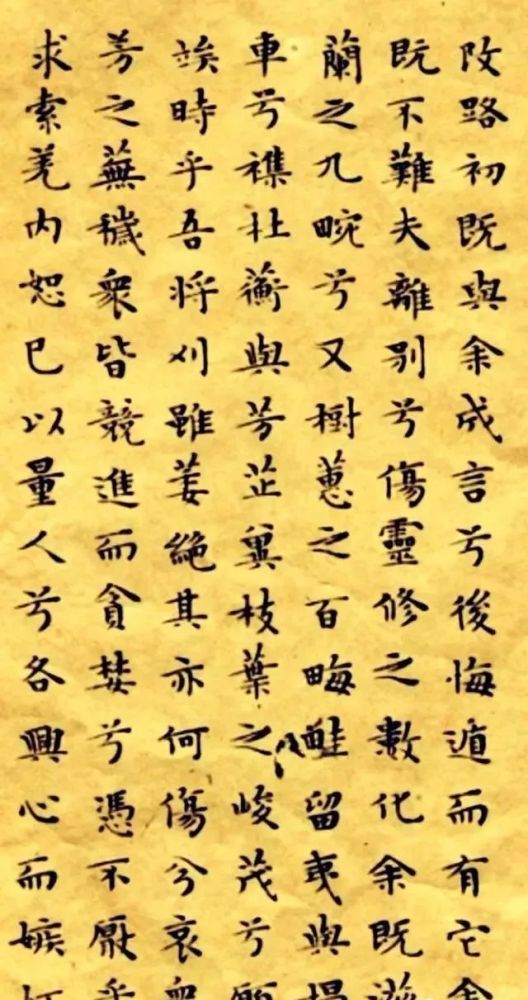 攺路初既與余成言兮後悔遁而有它余
既不難夫離别兮傷靈修之數化余既滋
蘭之九畹兮又樹蕙之百畮畦留夷與揭
車兮襍杜蘅與芳芷冀枝葉之峻茂兮願
竢時乎吾將刈雖萎絶其亦何傷兮哀衆
芳之蕪穢衆皆競進而貪婪兮憑不厭乎
求索羌内恕己以量人兮各興心而嫉妒